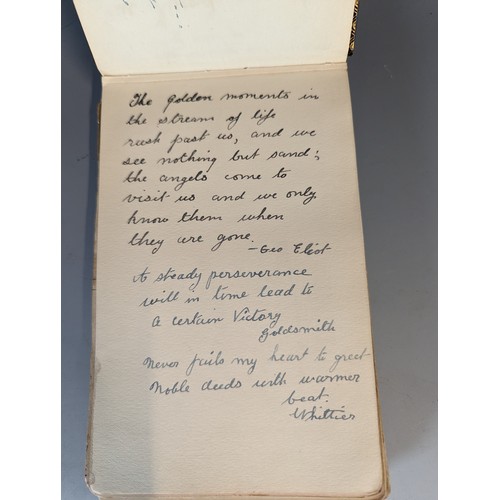 The golden moments in
the stream of life
rush past us, and we
see nothing but sand;
the angels come to
visit us and we only
know them when
they are gone.
- Geo Eliot
A steady perseverance
will in time lead to
a certain Victory
Goldsmith
Never fails my heart to greet
Noble deeds with warmer
beat.
Whittier